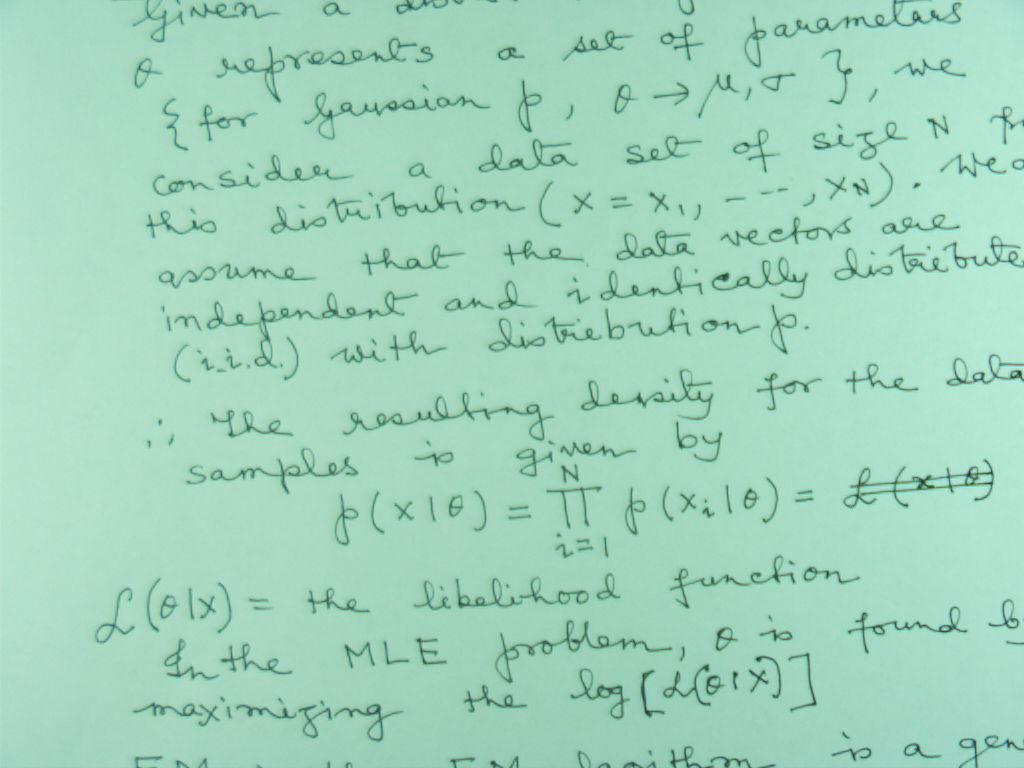 Given a
θ represents a set of parameters
{ for Gaussian p, θ → μ, σ }, we
consider a data set of size N
this distribution (x = x₁, ----, x_N). We
assume that the data vectors are
independent and identically distribute
(i.i.d.) with distriebution p.
∴ The resulting density for the data
samples is given by
p(x|θ) = ∏_{i=1}^{N} p(x_i|θ) = ~~ℒ(x|θ)~~
ℒ(θ|X) = the likelihood function
In the MLE problem, θ is found
maximizing the log [ℒ(θ|X)]
EM is a